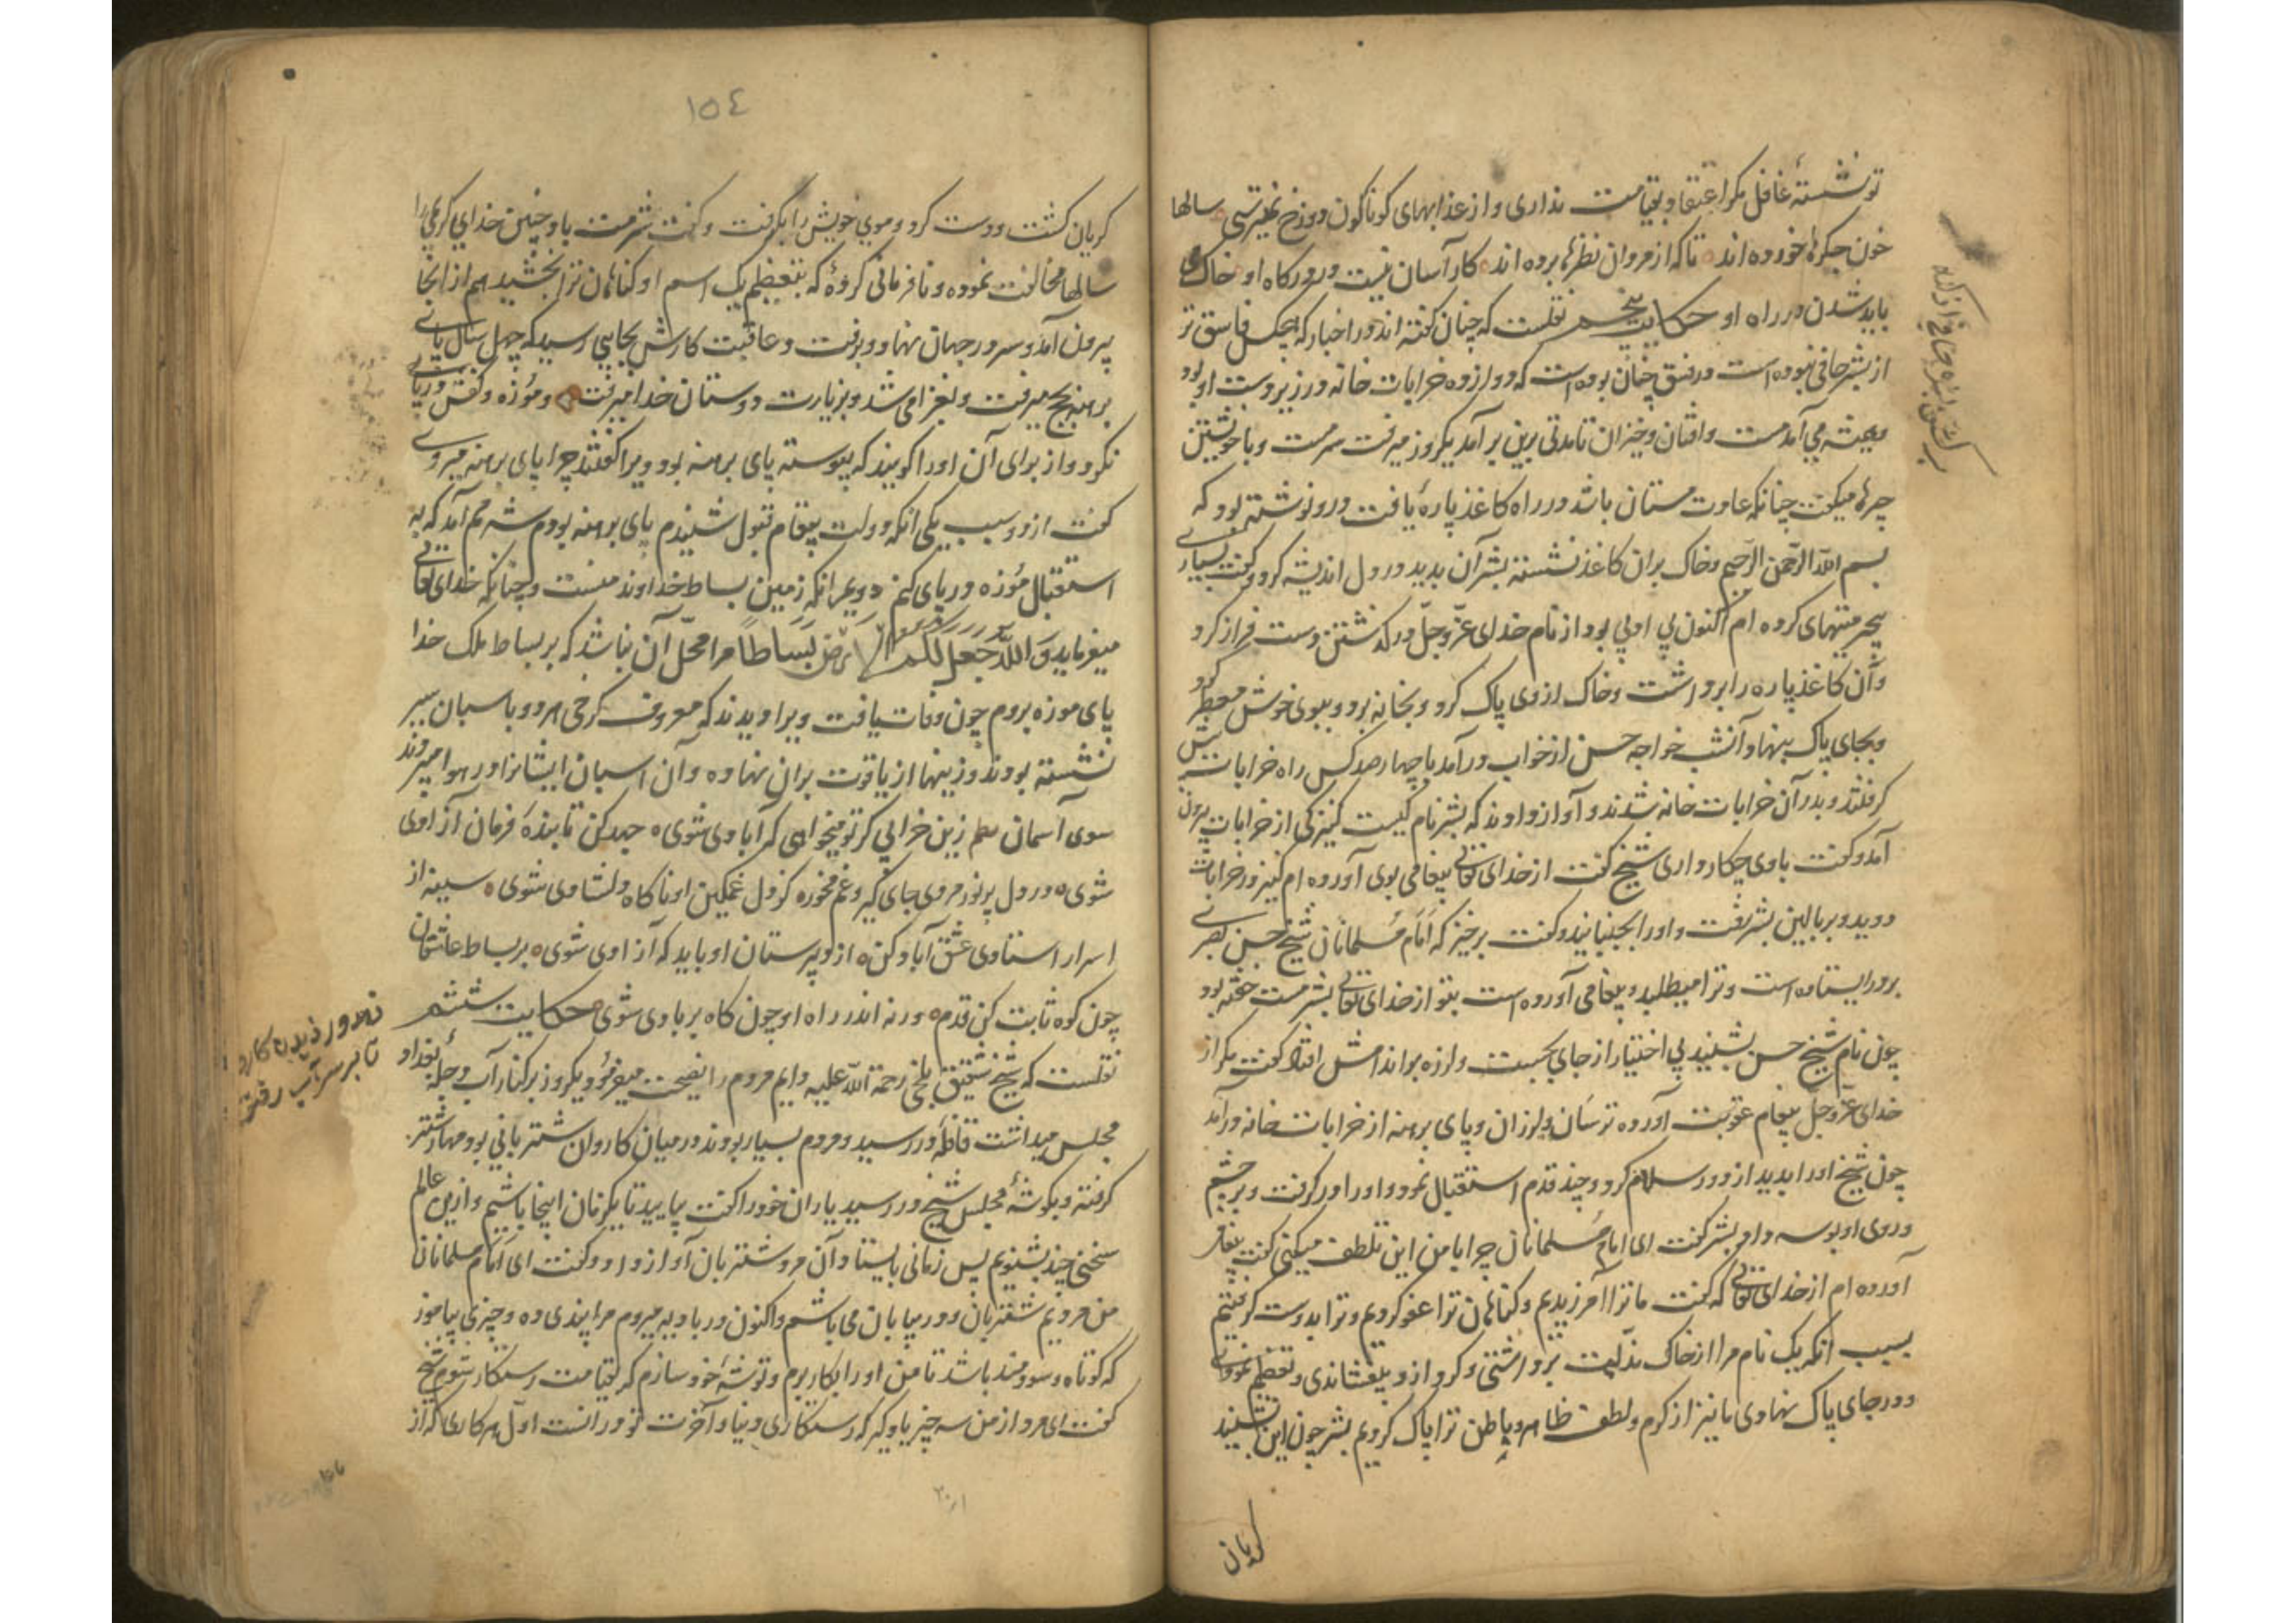 تو نشستهٔ غافل مکر اعتقاد بقیامت نداری و از عذابهای کوناکون دوزخ نمیترسی سالها
خون جکرها خورده اند تا که از مردان نظرها برده اند کار آسان نیست در درکاه او خاک می
باید شدن در راه او حکایت پنجم نقلست که چنان کفته اند در اخبار که هیچکس فاسق تر
از بشر حافی نبوده است و در فسق چنان بوده است که دوازده خرابات خانه در زیر دست او بود
و همیشه می آمد مست و افتان و خیزان تا مدتی برین بر آمد یکروز میرفت سرمست و با خویشتن
چیزها میکفت چنانکه عادت مستان باشد در راه کاغذ پارهٔ یافت درو نوشته بود که
بسم الله الرّحمن الرّحیم و خاک بران کاغذ نشسته بشر آن بدید در دل اندیشه کرد و کفت بسیاری
بیحرمتیهای کرده ام اکنون بی ادبی بود از نام خدای عزّ و جلّ در کذشتن دست فراز کرد
و آن کاغذ پاره را برداشت و خاک از وی پاک کرد و بخانه برد و ببوی خوش معطر کرد
و بجای پاک بنهاد آنشب خواجه حسن از خواب در آمد با چهارصد کس راه خرابات پیش
کرفتند و بدر آن خرابات خانه شدند و آواز دادند که بشر نام کیست کنیزکی از خرابات بیرون
آمد و کفت با وی چکار داری شیخ کفت از خدای تعالی پیغامی بوی آورده ام کنیز در خرابات
دوید و بر بالین بشر رفت و او را بجنبانید و کفت برخیز که امام مسلمانان شیخ حسن بصری
بر در ایستاده است و ترا میطلبد و پیغامی آورده است بتو از خدای تعالی بشر مست خفته بود
چون نام شیخ حسن بشنید بی اختیار از جای بجست و لرزه بر اندامش افتاد کفت مکر از
خدای عزّ و جلّ پیغام عقوبت آورده ترسان و لرزان و پای برهنه از خرابات خانه در آمد
چون شیخ او را بدید از دور سلام کرد و چند قدم استقبال نمود و او را در کرفت و بر چشم
و روی او بوسه داد بشر کفت ای امام مسلمانان چرا با من این تلطف میکنی کفت پیغام
آورده ام از خدای تعالی که کفت ما ترا آمرزیدیم و کناهان ترا عفو کردیم و ترا بدوست کرفتیم
بسبب آنکه یک نام مرا از خاک مذلّت برداشتی و کرد ازو بیفشاندی و تعظیم نمودی
و در جای پاک نهادی ما نیز از کرم و لطف ظاهر و باطن ترا پاک کردیم بشر چون این بشنید
کریان
١٥٤
کریان کشت و دست کرد و موی خویش را بکرفت و کفت شرمت باد چنین خدای کریم را
سالها مخالفت نموده و نافرمانی کردهٔ که بتعظیم یک اسم او کناهان ترا بخشید هم از انجا
بیرون آمد و سر در جهان نهاد و برفت و عاقبت کارش بجایی رسید که چهل سال پای
برهنه بحج میرفت و بغزا می شد و بزیارت دوستان خدا میرفت و موزه و کفش در پای
نکرد و از برای آن او را کویند که پیوسته پای برهنه بود ویرا کفتند چرا پای برهنه میروی
کفت از دو سبب یکی آنکه دولت پیغام قبول شنیدم پای برهنه بودم شرمم آمد که به
استقبال موزه در پای کنم دویم انکه زمین بساط خداوند منست و چنانکه خدای تعالی
میفرماید وَالله جعل لکم الارض بساطاً مرا محلّ آن نباشد که بر بساط ملک خدا
پای موزه بروم چون وفات یافت ویرا دیدند که معروف کرخی هر دو با سبان سیر
نشسته بودند و زینها از یاقوت بران نهاده و آن اسبان ایشانرا در هوا میبردند
سوی آسمان نظم زین خرابی کر تو میخواهی که آبادی شوی جهد کن تا بندهٔ فرمان آزادی
شوی در دل پر نور مردی جای کیر و غم مخور کز دل غمکین او ناکاه دلشادی شوی سینه از
اسرار استادی عشق آباد کن از پرستان او باید که آزادی شوی بر بساط عاشقان
چون کوه ثابت کن قدم ورنه اندر راه او چون کاه بر بادی شوی حکایت ششم
نقلست که شیخ شقیق بلخی رحمة الله علیه دایم مردم را نصیحت میفرمود و یکروز بر کنار آب دجلهٔ بغداد
مجلس میداشت قافله در رسید و مردم بسیار بودند در میان کاروان شتربانی بود مهار شتر
کرفته و بکوشهٔ مجلس شیخ در رسید یاران خود را کفت بیایید تا یکزمان اینجا باشیم و ازین عالم
سخنی چند بشنویم پس زمانی بایستاد آن مرد شتربان آواز داد و کفت ای امام مسلمانان
من مردیم شتربان و در بیابان می باشم و اکنون در بادیه میروم مرا پندی ده و چیزی بیاموز
که کوتاه و سودمند باشد تا من او را بکار برم و توشهٔ خود سازم که بقیامت رستکار شوم شیخ
کفت ای مرد از من سه چیز یاد کیر که رستکاری دنیا و آخرت تو در انست اول هر کاری که از
تا بر سر آب رفتن